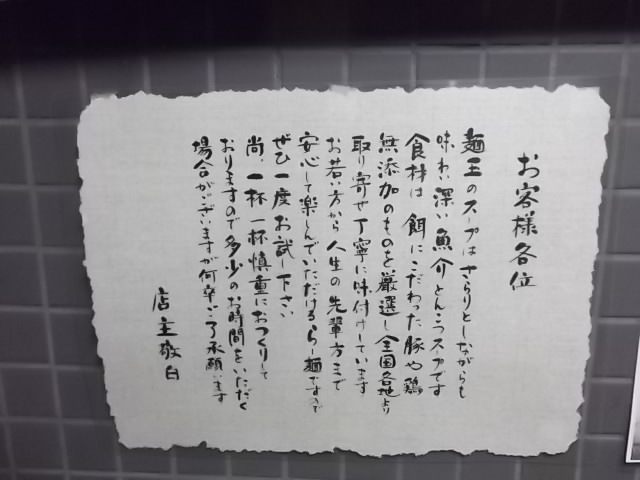 お客様各位
麺王のスープはさらりとしながらも
味わい深い魚介とんこつスープです
食材は 餌にこだわった豚や鶏
無添加のものを厳選し全国各地より
取り寄せ丁寧に味付けしています
お若い方から人生の先輩方まで
安心して楽しんでいただけるらー麺ですので
ぜひ一度お試し下さい
尚、一杯一杯慎重におつくりして
おりますので多少のお時間をいただく
場合がございますが何卒ご了承願います
店主敬白